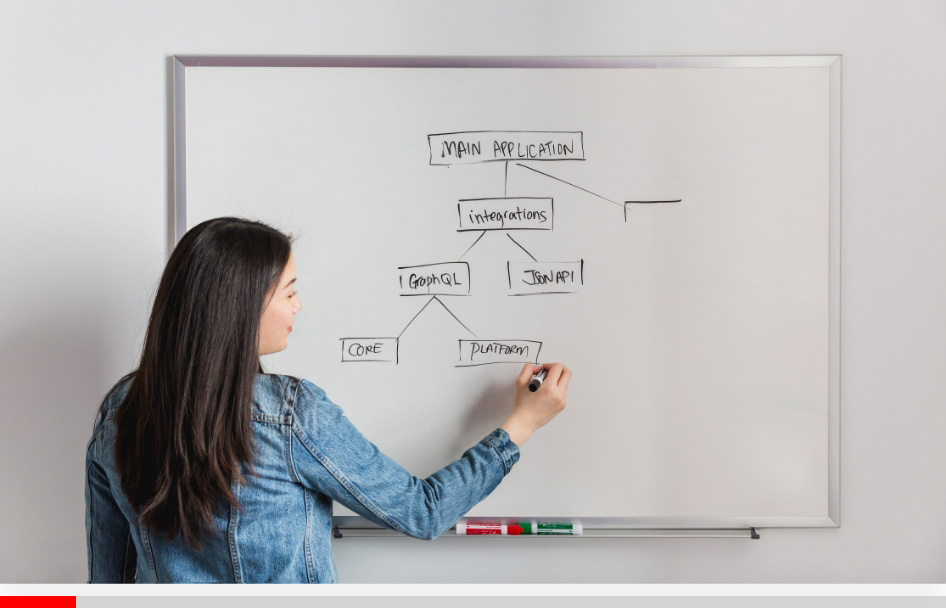 MAIN APPLICATION
integrations
GraphQL JSON API
CORE PLATFORM